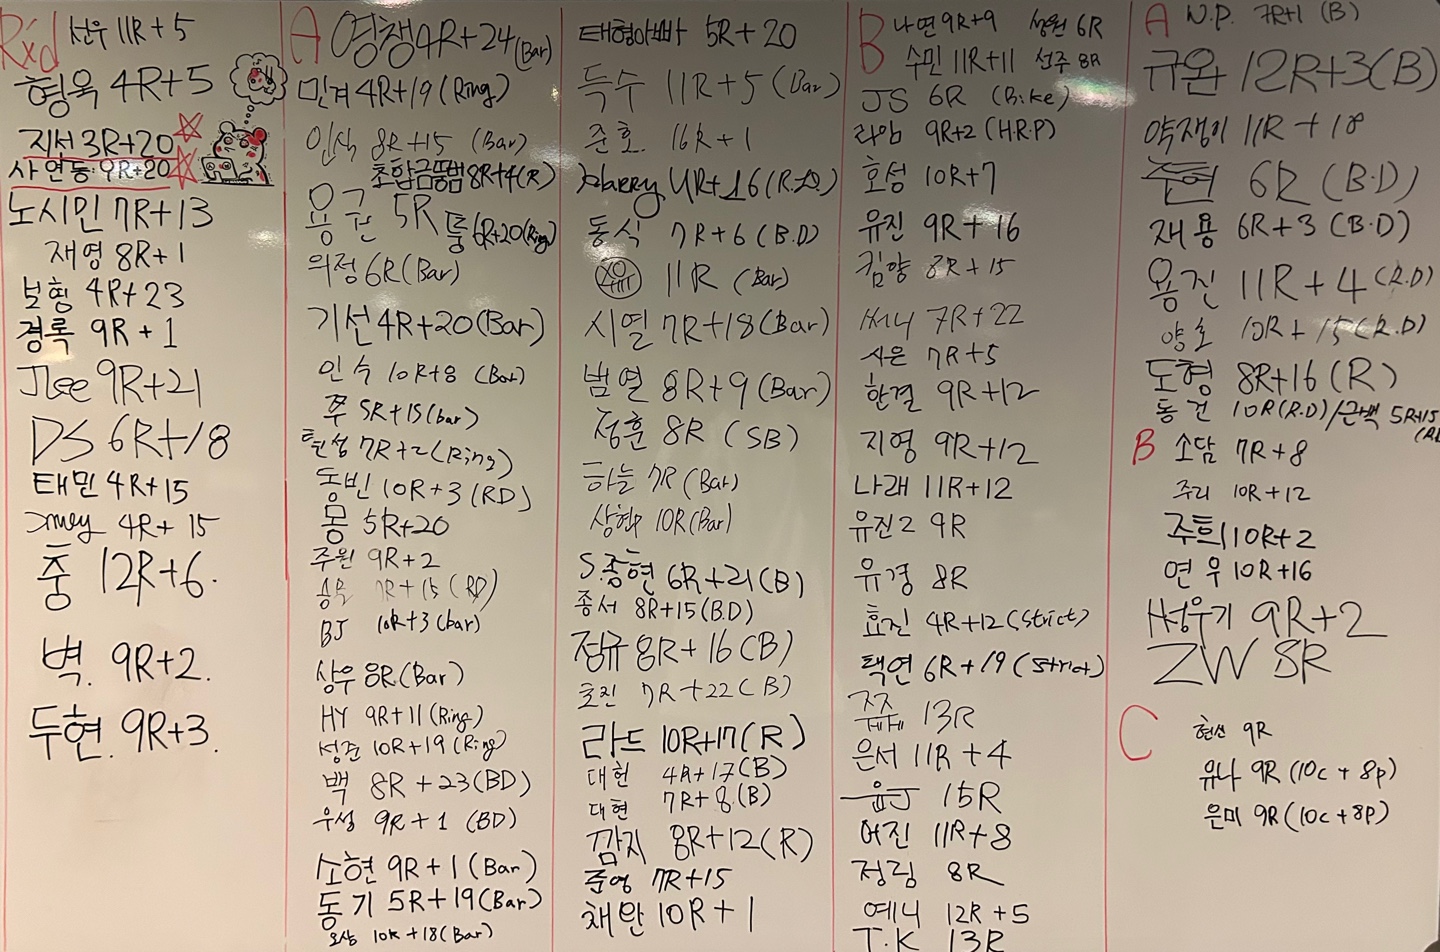 Rxd
선우 11R+5
형욱 4R+5
지선 3R+20
사연동 9R+20
노시민 7R+13
재영 8R+1
보형 4R+23
경록 9R+1
JLee 9R+21
DS 6R+18
태민 4R+15
4R+15
충 12R+6.
벽. 9R+2.
두현. 9R+3.
A
영챙 9R+24 (Bar)
민겨 4R+19 (Ring)
인식 8R+15 (Bar)
초합금뚱범 8R+4 (R)
용권 5R
룰 6R+20 (Ring)
의정 6R (Bar)
기선 4R+20 (Bar)
인수 10R+8 (Bar)
쭈 5R+15 (bar)
7R+2 (Ring)
동빈 10R+3 (RD)
몽 5R+20
주원 9R+2
7R+15 (RD)
BJ 10R+3 (bar)
상우 8R (Bar)
HY 9R+11 (Ring)
성준 10R+19 (Ring)
백 8R+23 (BD)
우성 9R+1 (BD)
소현 9R+1 (Bar)
동기 5R+19 (Bar)
10R+18 (Bar)
태형아빠 5R+20
득수 11R+5 (Bar)
준호. 16R+1
Harry 4R+16
동식 7R+6 (B.D)
11R (Bar)
시열 7R+18 (Bar)
범열 8R+9 (Bar)
정훈 8R (SB)
하늘 7R (Bar)
상현 10R (Bar)
S.종현 6R+21 (B)
종서 8R+15 (B.D)
정규 8R+16 (B)
호진 7R+22 (B)
라드 10R+17 (R)
대헌 4R+17 (B)
대현 7R+8 (B)
깜지 8R+12 (R)
준영 7R+15
채완 10R+1
B
나연 9R+9 성원 6R
수민 11R+11 선주 8R
JS 6R (Bike)
라암 9R+2 (H.R.P)
효성 10R+7
유진 9R+16
킴양 8R+15
써니 7R+22
사은 7R+5
한결 9R+12
지영 9R+12
나래 11R+12
유진2 9R
유경 8R
효진 4R+12 (Strict)
택연 6R+19 (Strict)
13R
은서 11R+4
15R
어진 11R+8
정림 8R
예니 12R+5
T.K 13R
A
N.P. 7R+1 (B)
규완 12R+3 (B)
약쟁이 11R+18
6R (B.D)
재용 6R+3 (B.D)
용진 11R+4 (R.D)
양호 10R+15 (R.D)
도형 8R+16 (R)
동건 10R (R.D) / 근백 5R+15
B
소담 7R+8
주리 10R+12
주희 10R+2
연우 10R+16
H성우기 9R+2
ZW 8R
C
현선 9R
유나 9R (10c + 8p)
은미 9R (10c + 8p)